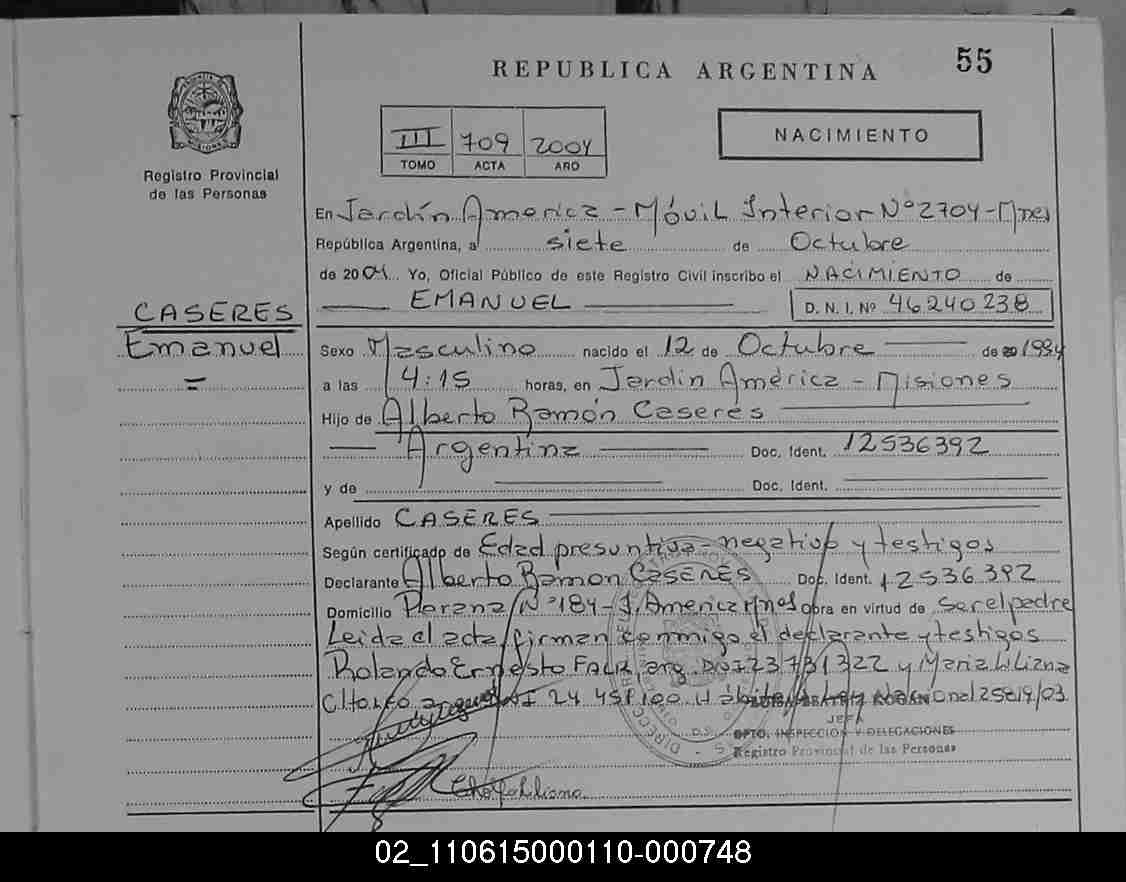 REPUBLICA ARGENTINA
55
III 709 2004
TOMO ACTA AÑO
NACIMIENTO
Registro Provincial
de las Personas
En Jardín America - Móvil Interior Nº 2704 - Mnes
República Argentina, a siete de Octubre
de 2004 Yo, Oficial Público de este Registro Civil inscribo el NACIMIENTO de
EMANUEL D. N. I. Nº 46240238
CASERES
Emanuel
Sexo Masculino nacido el 12 de Octubre de 20 1994
a las 14:15 horas, en Jardín América - Misiones
Hijo de Alberto Ramón Caseres
Argentina Doc. Ident. 12536392
y de Doc. Ident.
Apellido CASERES
Según certificado de Edad presuntiva - negativo y testigos
Declarante Alberto Ramon CASERES Doc. Ident. 12536392
Domicilio Parana Nº 184 - J. America Mnes obra en virtud de ser el padre
Leida el acta firman conmigo el declarante y testigos
Rolando Ernesto arg. DNI 23731322 y Maria Liliana
24 Nacional 25819/03
BEATRIZ KOGAN
JEFA
DPTO. INSPECCION Y DELEGACIONES
Registro Provincial de las Personas
02_110615000110-000748